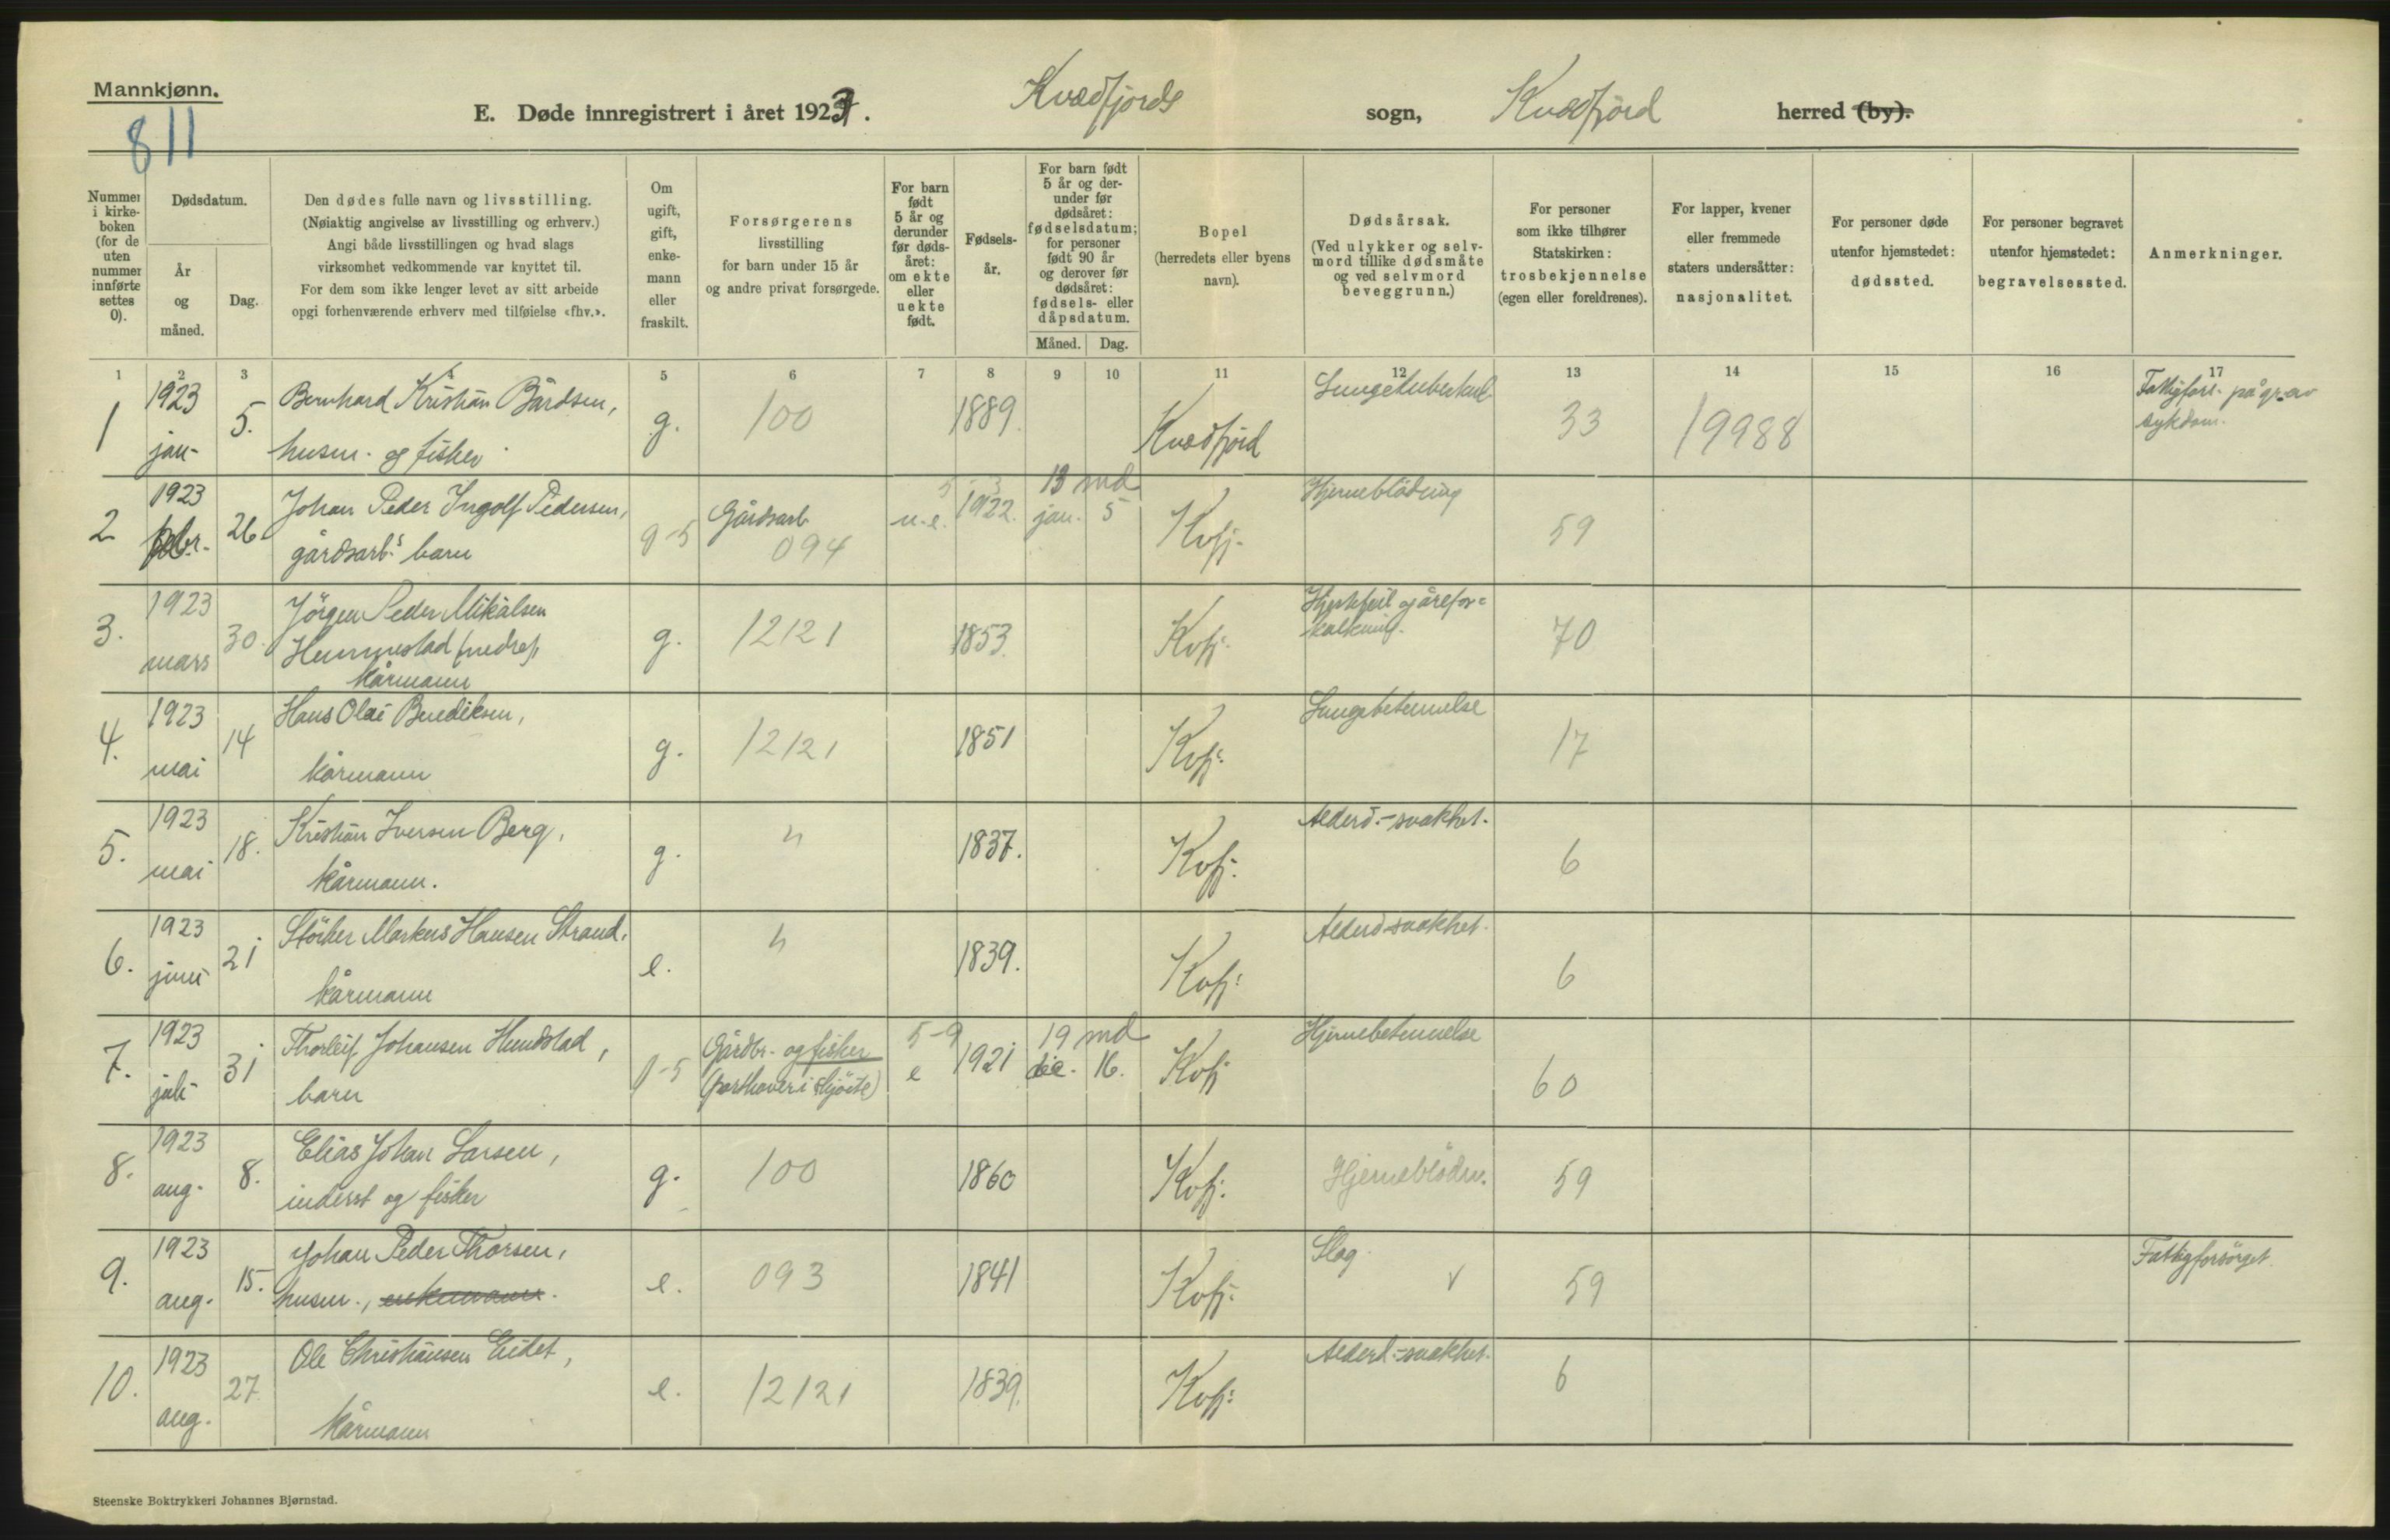 Mannkjønn.
811
E. Døde innregistrert i året 1923. Kvædfjords sogn, Kvædfjord herred (by).
Nummer i kirkeboken (for de uten nummer innførte settes 0).
Dødsdatum.
År og måned.
Dag.
Den dødes fulle navn og livsstilling.
(Nøiaktig angivelse av livsstilling og erhverv.)
Angi både livsstillingen og hvad slags
virksomhet vedkommende var knyttet til.
For dem som ikke lenger levet av sitt arbeide
opgi forhenværende erhverv med tilføielse «fhv.».
Om ugift, gift, enkemann eller fraskilt.
Forsørgerens
livsstilling
for barn under 15 år
og andre privat forsørgede.
For barn født 5 år og derunder før dødsåret: om ekte eller uekte født.
Fødselsår.
For barn født 5 år og derunder før dødsåret: fødselsdatum; for personer født 90 år og derover før dødsåret: fødsels- eller dåpsdatum.
Måned. Dag.
Bopel
(herredets eller byens
navn).
Dødsårsak.
(Ved ulykker og selvmord tillike dødsmåte og ved selvmord beveggrunn.)
For personer
som ikke tilhører
Statskirken:
trosbekjennelse
(egen eller foreldrenes).
For lapper, kvener
eller fremmede
staters undersåtter:
nasjonalitet.
For personer døde
utenfor hjemstedet:
dødssted.
For personer begravet
utenfor hjemstedet:
begravelsessted.
Anmerkninger.
1 2 3 4 5 6 7 8 9 10 11 12 13 14 15 16 17
1 1923 jan. 5. Bernhard Kristian Bårdsen, husm. og fisker g. 100 1889. Kvædfjord Lungetuberkul. 33 19988 Fattigfors. på gr. av sykdom.
2 1923 febr. 26 Johan Peder Ingolf Pedersen, gårdsarb.s barn 0-5 Gårdsarb. 094 u.e. 5-3 1922. 13 md jan. 5 Kvfj. Hjerneblødning 59
3. 1923 mars 30. Jörgen Peder Mikalsen Hemmestad (nedre), kårmann g. 12121 1853. Kvfj. Hjertefeil og åreforkalkning. 70
4. 1923 mai 14 Hans Olai Bendiksen, kårmann g. 12121 1851 Kvfj. Lungebetennelse 17
5. 1923 mai 18. Kristian Iversen Berg, kårmann. g. " 1837. Kvfj. Alderd.-svakhet. 6
6. 1923 juni 21 Störker Markus Hansen Strand, kårmann e. " 1839. Kvfj. Alderd-svakhet. 6
7. 1923 juli 31 Thorleif Johansen Hundstad, barn 0-5 Gårdbr. og fisker (parthaver i skjöite) 5-9 e 1921 19 md dec. 16. Kvfj Hjernebetennelse 60
8. 1923 aug. 8. Elias Johan Larsen, inderst og fisker g. 100 1860 Kvfj. Hjerneblödn. 59
9. 1923 aug. 15. Johan Peder Thorsen, husm., enkemann. e. 093 1841 Kvfj. Slag v 59 Fattigforsörget.
10. 1923 aug. 27 Ole Christiansen Eidet, kårmann e. 12121 1839. Kvfj. Alderd.-svakhet. 6
Steenske Boktrykkeri Johannes Bjørnstad.